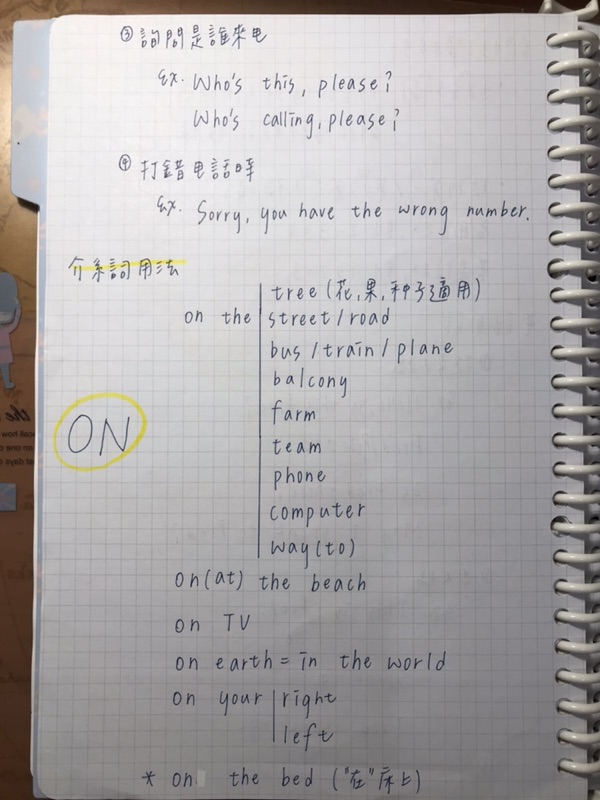 ③ 詢問是誰來电
ex. Who's this, please?
Who's calling, please?
④ 打錯电話時
ex. Sorry, you have the wrong number.
介系詞用法
tree (花,果,种子適用)
on the street/road
bus/train/plane
balcony
farm
ON
team
phone
computer
way(to)
on(at) the beach
on TV
on earth = in the world
on your right
left
* on the bed ("在"床上)